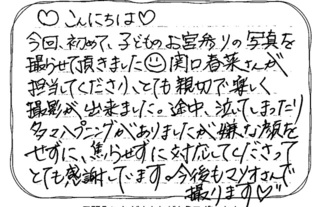 ♡こんにちは♡
今回、初めて、子どものお宮参りの写真を
撮らせて頂きました☺関口春菜さんが
担当してくださり、とても親切で楽しく
撮影が出来ました。途中、泣いてしまったり
多々ハプニングがありましたが嫌な顔を
せずに、焦らせずに対応してくださって
とても感謝しています。今後もマリオさんで
撮ります♡